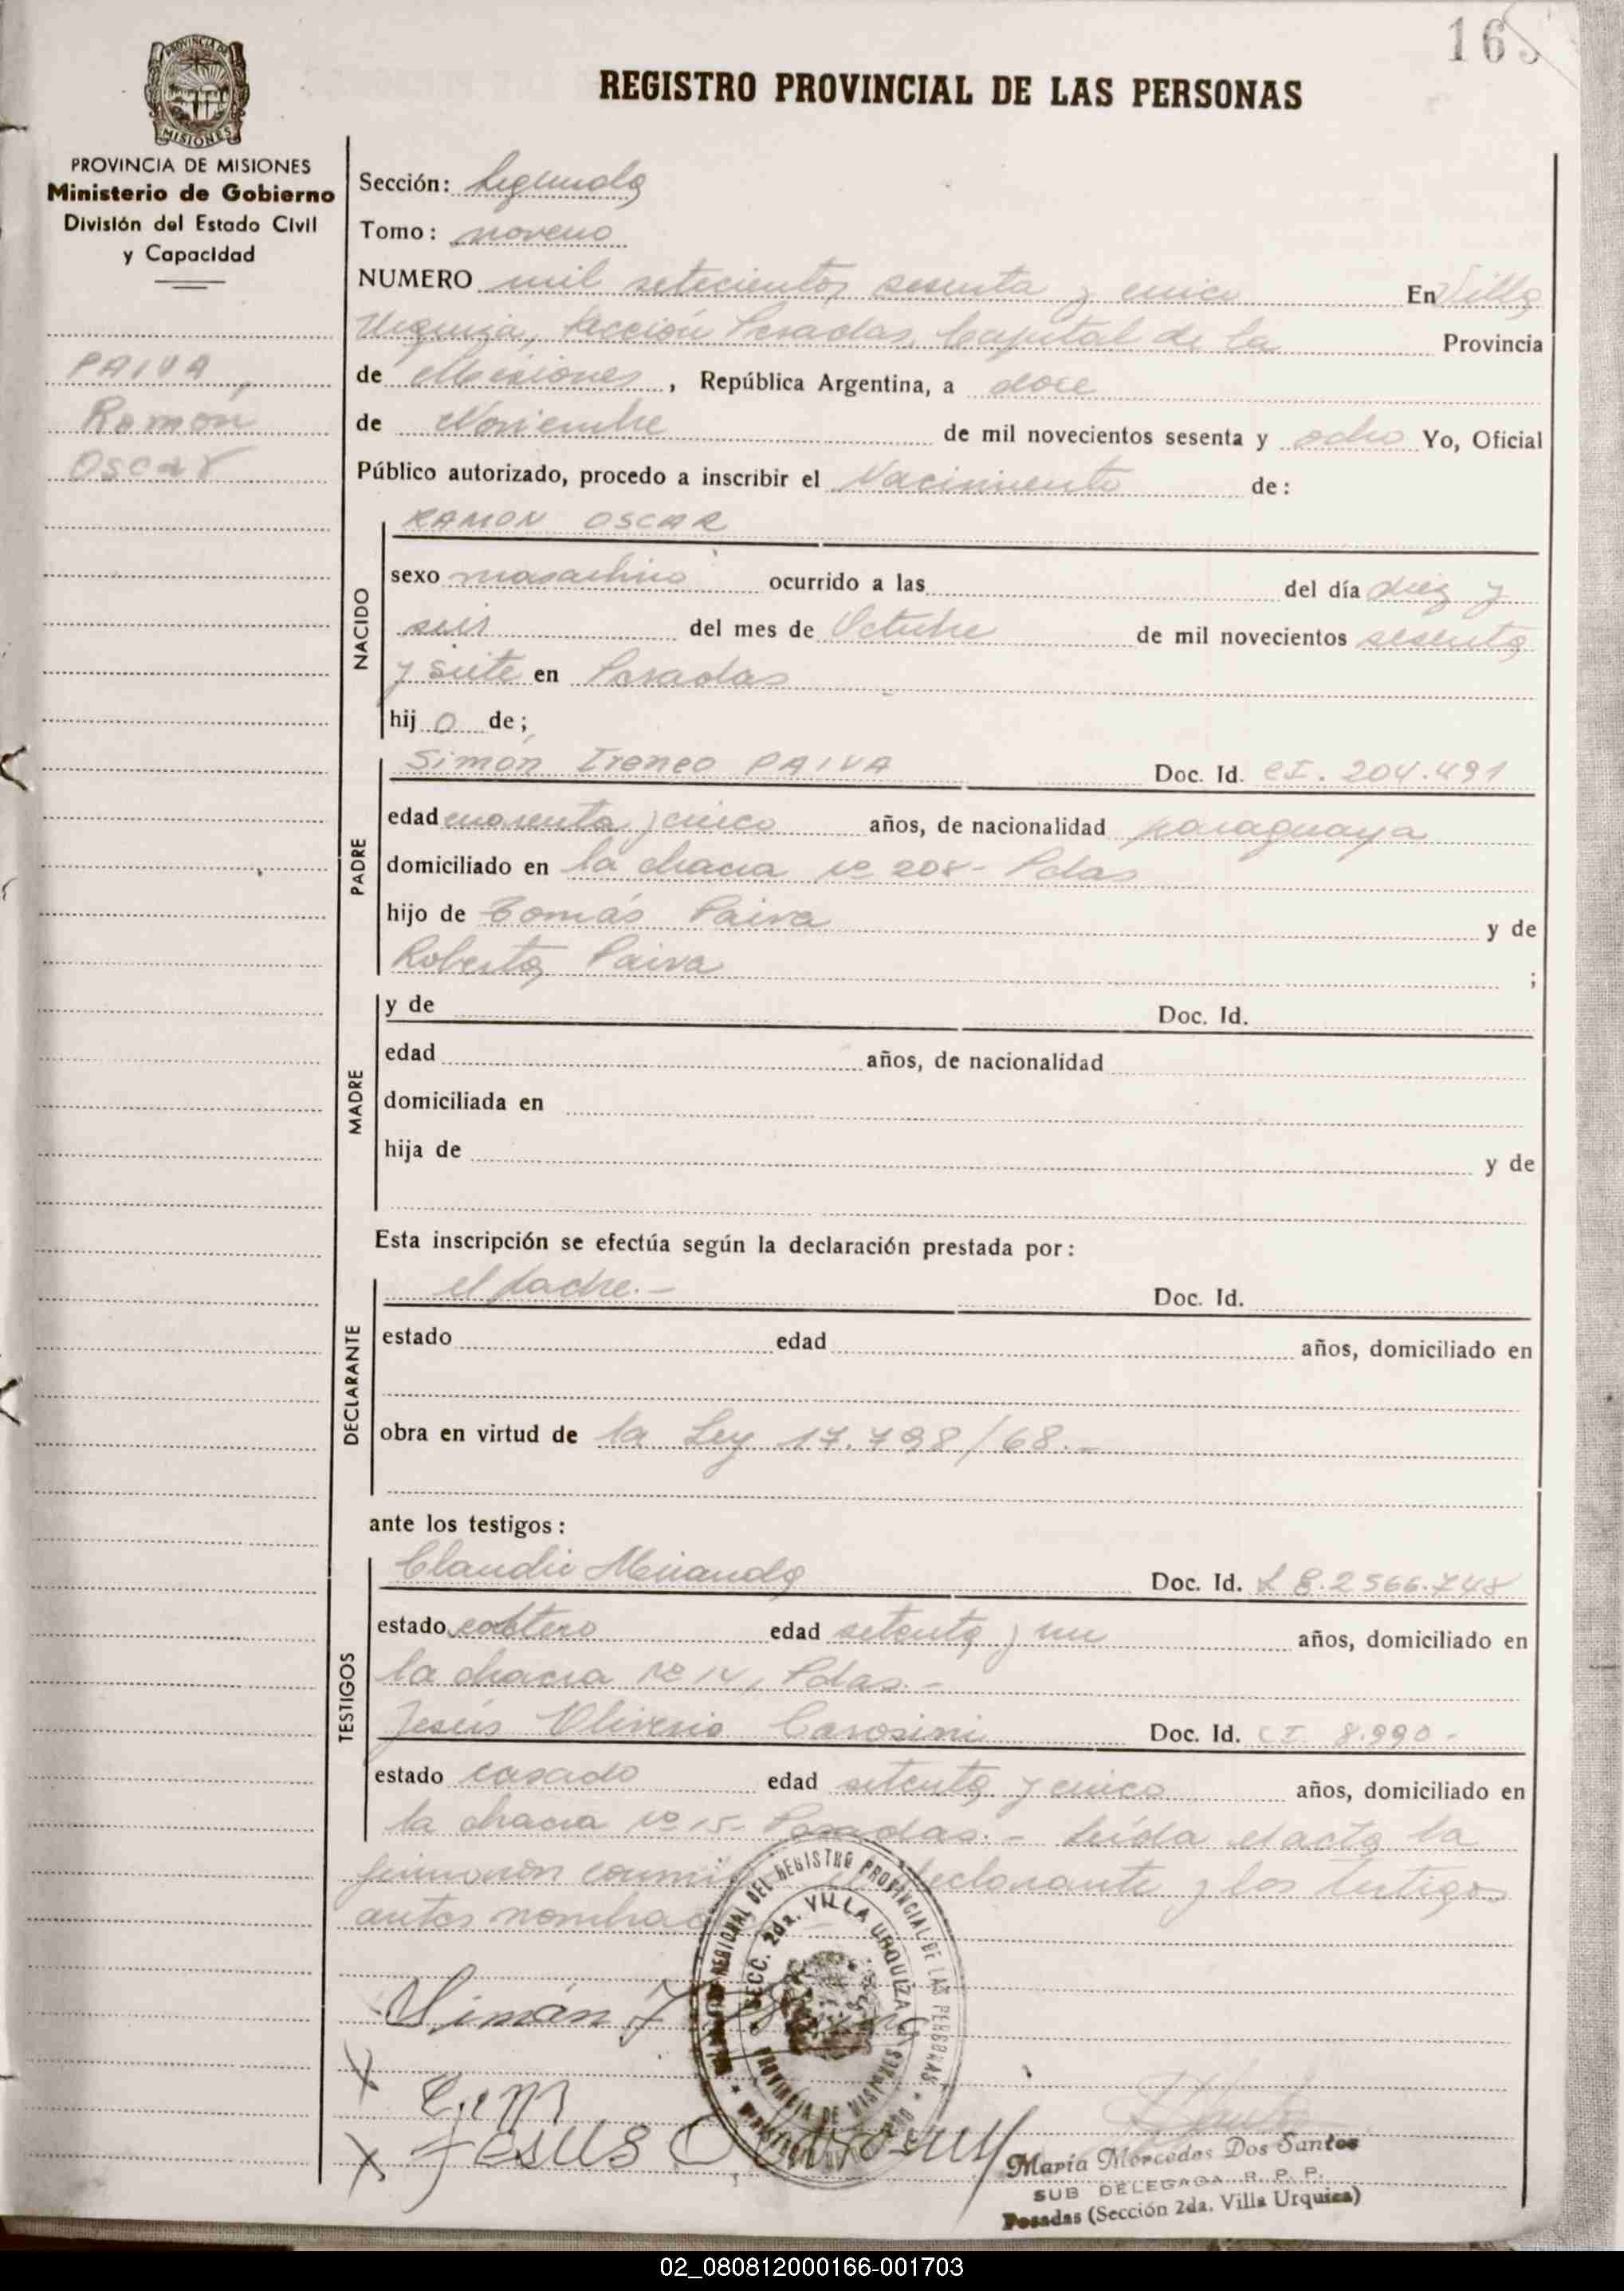 165
PROVINCIA DE MISIONES
REGISTRO PROVINCIAL DE LAS PERSONAS
PROVINCIA DE MISIONES
Ministerio de Gobierno
División del Estado Civil
y Capacidad
PAIVA,
Ramón
Oscar
Sección: Segunda
Tomo: noveno
NUMERO mil setecientos sesenta y cinco En Villa
Urquiza, Sección Posadas, Capital de la Provincia
de Misiones, República Argentina, a doce
de Noviembre de mil novecientos sesenta y ocho Yo, Oficial
Público autorizado, procedo a inscribir el Nacimiento de:
NACIDO
RAMON OSCAR
sexo masculino ocurrido a las del día diez y
seis del mes de Octubre de mil novecientos sesenta
y siete en Posadas
hij o de;
PADRE
Simón Ireneo PAIVA Doc. Id. CI. 204.491
edad cuarenta y cinco años, de nacionalidad paraguaya
domiciliado en la chacra nº 208 - Pdas
hijo de Tomás Paiva y de
Roberta Paiva ;
MADRE
y de Doc. Id.
edad años, de nacionalidad
domiciliada en
hija de y de
Esta inscripción se efectúa según la declaración prestada por:
DECLARANTE
el padre.- Doc. Id.
estado edad años, domiciliado en
obra en virtud de la Ley 17.798/68.-
ante los testigos:
TESTIGOS
Claudio Miranda Doc. Id. L E.2566.748
estado soltero edad setenta y un años, domiciliado en
la chacra nº 14, Pdas.-
Jesús Oliverio Carosini Doc. Id. CI 8.990-
estado casado edad setenta y cinco años, domiciliado en
la chacra nº 15- Posadas.- Leída el acta la
firmaron declarante y los testigos
antes
REGIONAL DEL REGISTRO PROVINCIAL DE LAS PERSONAS
SECC. 2da. VILLA URQUIZA
PROVINCIA DE MISIONES
Simán
Jesus
María Mercedes Dos Santos
SUB DELEGADA R. P. P.
Posadas (Sección 2da. Villa Urquiza)
02_080812000166-001703